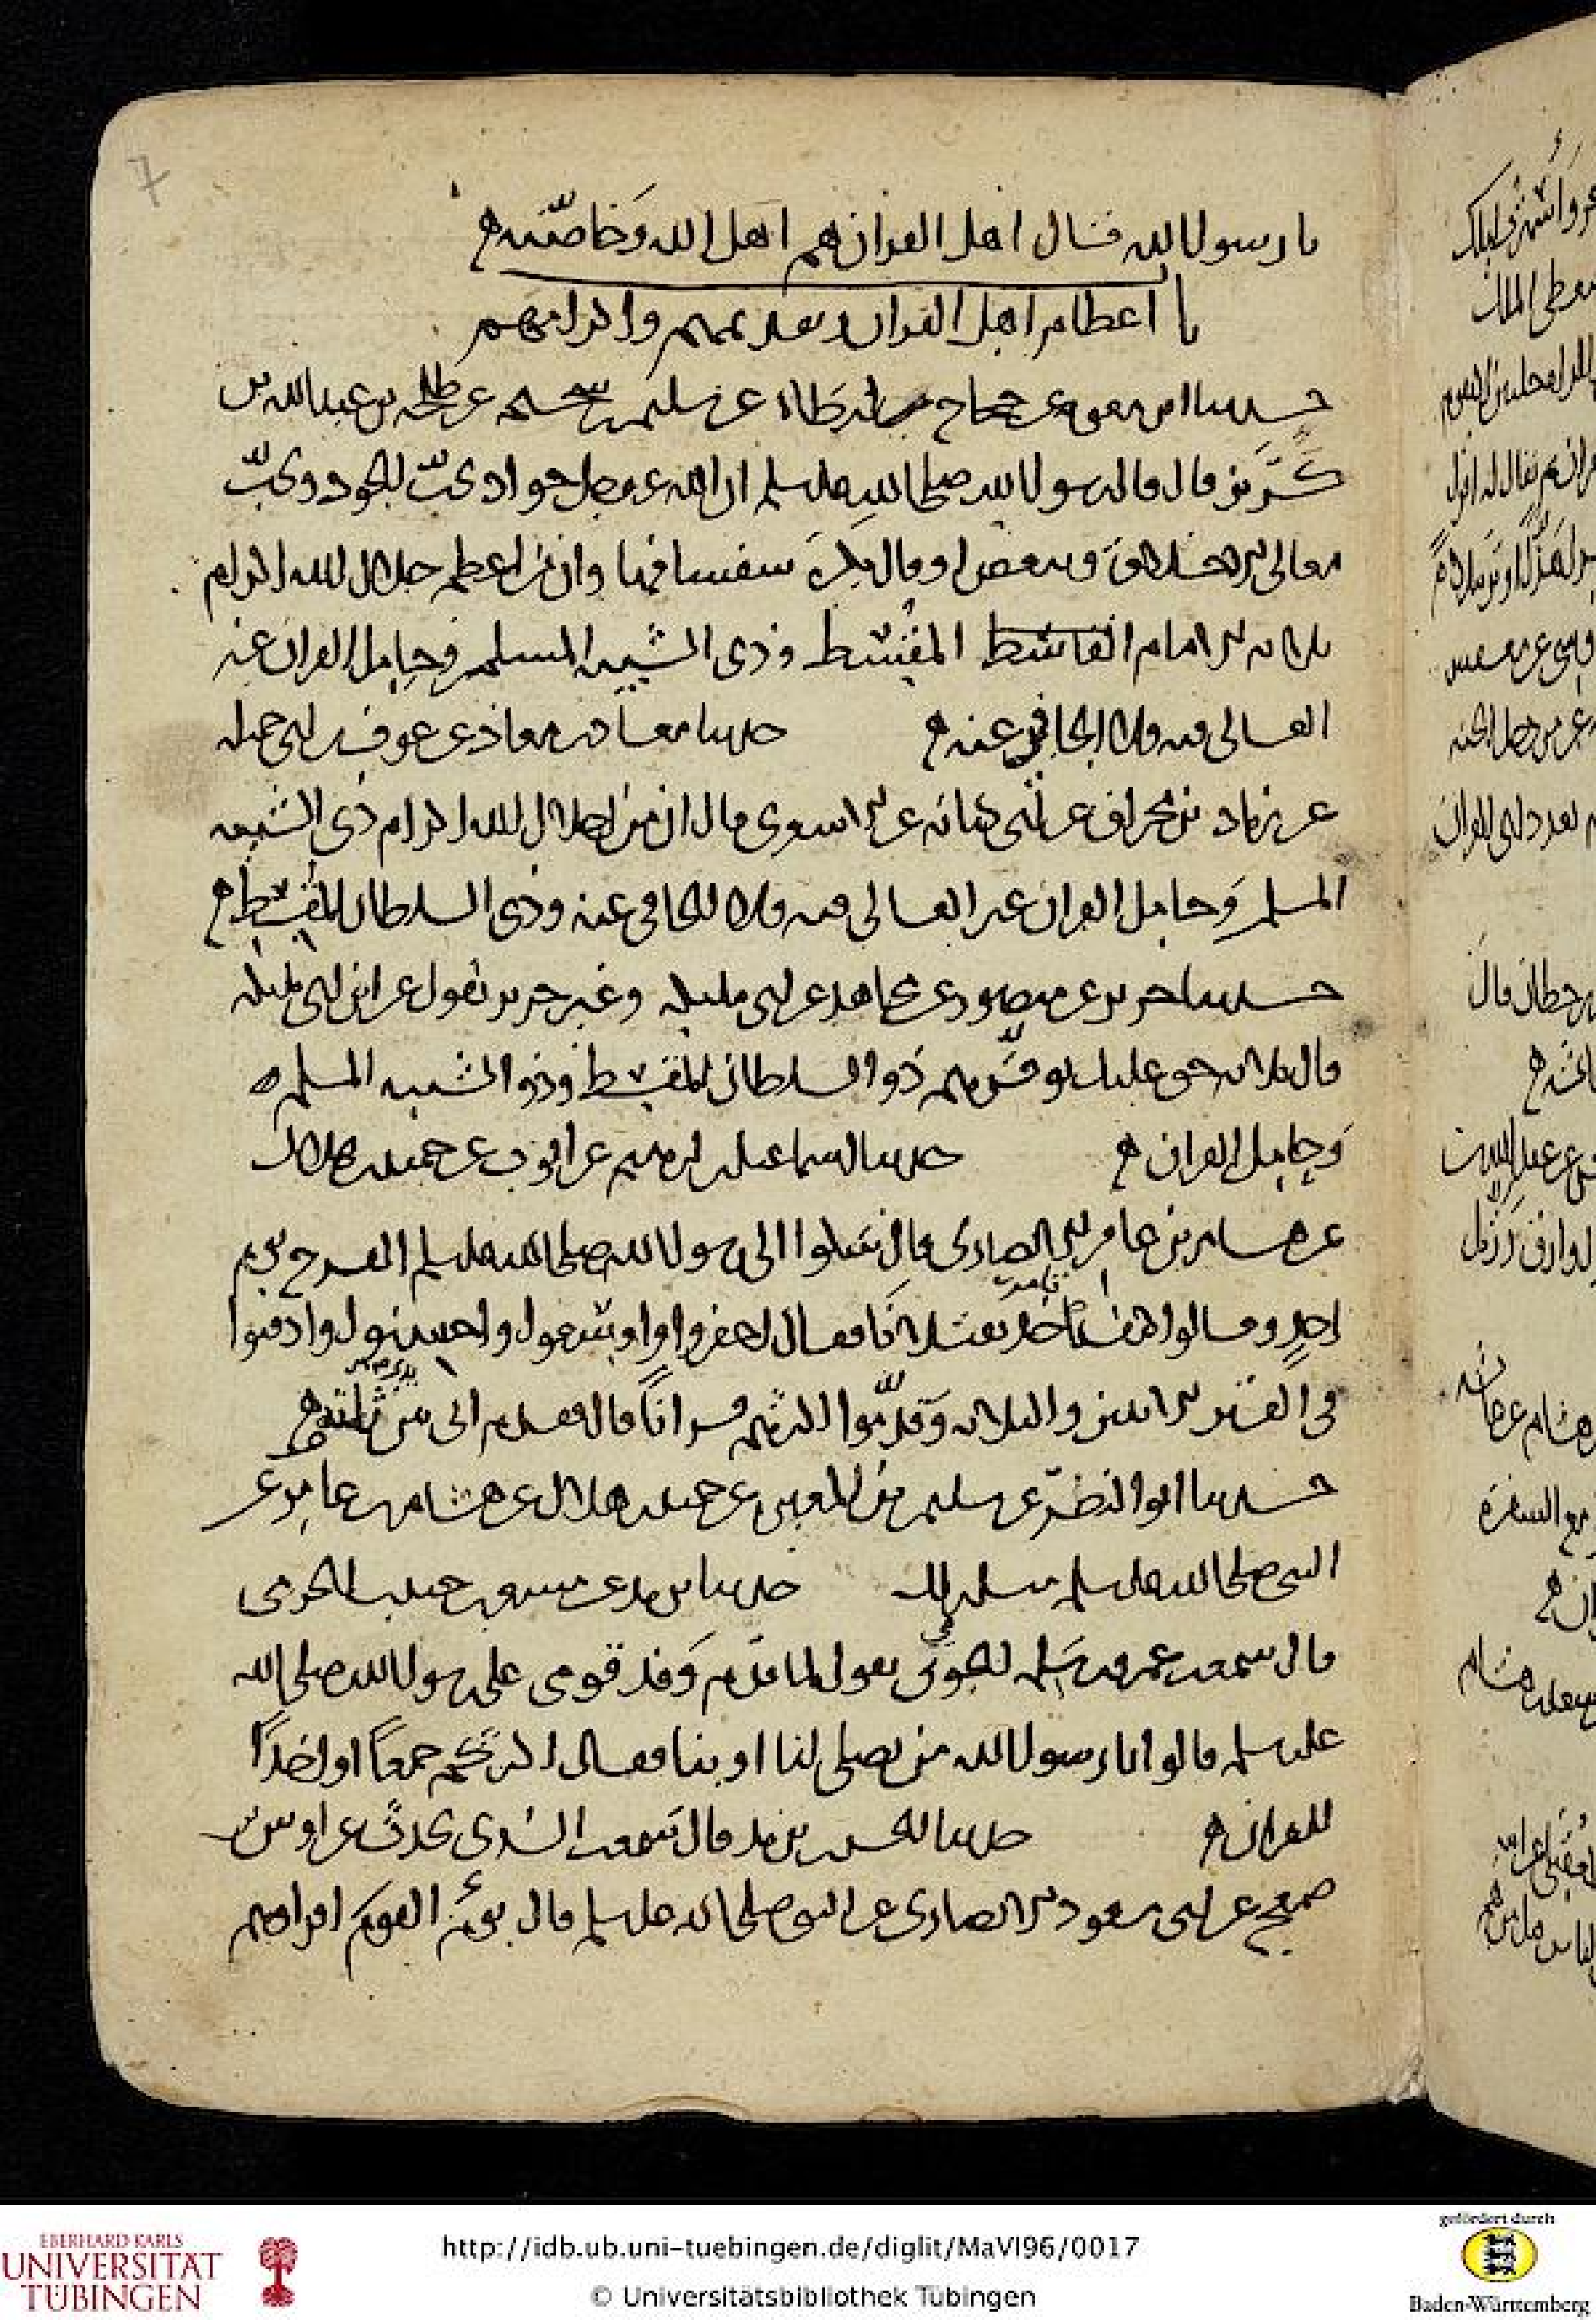 7
يا رسول الله فقال اهل القران هم اهل الله وخاصته
باب اعظام اهل القران وتقديمهم واكرامهم
حدثنا ابو معوية عن حجاج بن ارطاة عن سليمن بن سحيم عن طلحة بن عبيد الله بن
كريز قال قال رسول الله صلى الله عليه وسلم ان الله عز وجل جواد يحب الجود ويحب
معالي الاخلاق ويبغض او قال يكره سفسافها وان من اعظم جلال الله اكرام
ثلاثة الامام المقسط وذي الشيبة المسلم وحامل القران غير
الغالي فيه ولا الجافي عنه حدثنا معاذ بن معاذ عن عوف بن ابي جميلة
عن زياد بن مخراق عن ابي كنانة عن الاشعري قال ان من اجلال الله اكرام ذي الشيبة
المسلم وحامل القران غير الغالي فيه ولا الجافي عنه وذي السلطان المقسط
حدثنا جرير عن منصور عن مجاهد عن ابي مليلة وغير جرير يقول عن ابن ابي مليلة
قال ثلاثة حق عليك توقيرهم ذو السلطان المقسط وذو الشيبة المسلم
وحامل القران حدثنا اسماعيل بن ابرهيم عن ايوب عن حميد بن هلال
عن هشام بن عامر الانصاري قال شكوا الى رسول الله صلى الله عليه وسلم القرح يوم
احد وقالوا كيف تامر بقتلانا فقال احفروا واوسعوا واحسنوا وادفنوا
في القبر الاثنين والثلاثة وقدموا اكثرهم قرانا قال فقدم ابي بين يدي
حدثنا ابو النضر عن سليمن بن المغيرة عن حميد بن هلال عن هشام بن عامر عن
النبي صلى الله عليه وسلم مثل ذلك حدثنا يزيد عن مسعر بن حبيب الجرمي
قال سمعت عمرو بن سلمة الجرمي يقول لما قدم وفد قومي على رسول الله صلى الله
عليه وسلم قالوا يا رسول الله من يصلي لنا او بنا فقال اكثركم جمعا او اخذا
للقران حدثنا الحسن بن يزيد قال سمعت السدي يحدث عن اوس بن
ضمعج عن ابي مسعود الانصاري عن النبي صلى الله عليه وسلم قال يؤم القوم اقراهم
EBERHARD KARLS
UNIVERSITÄT
TÜBINGEN
http://idb.ub.uni-tuebingen.de/diglit/MaVI96/0017
© Universitätsbibliothek Tübingen
gefördert durch
Baden-Württemberg